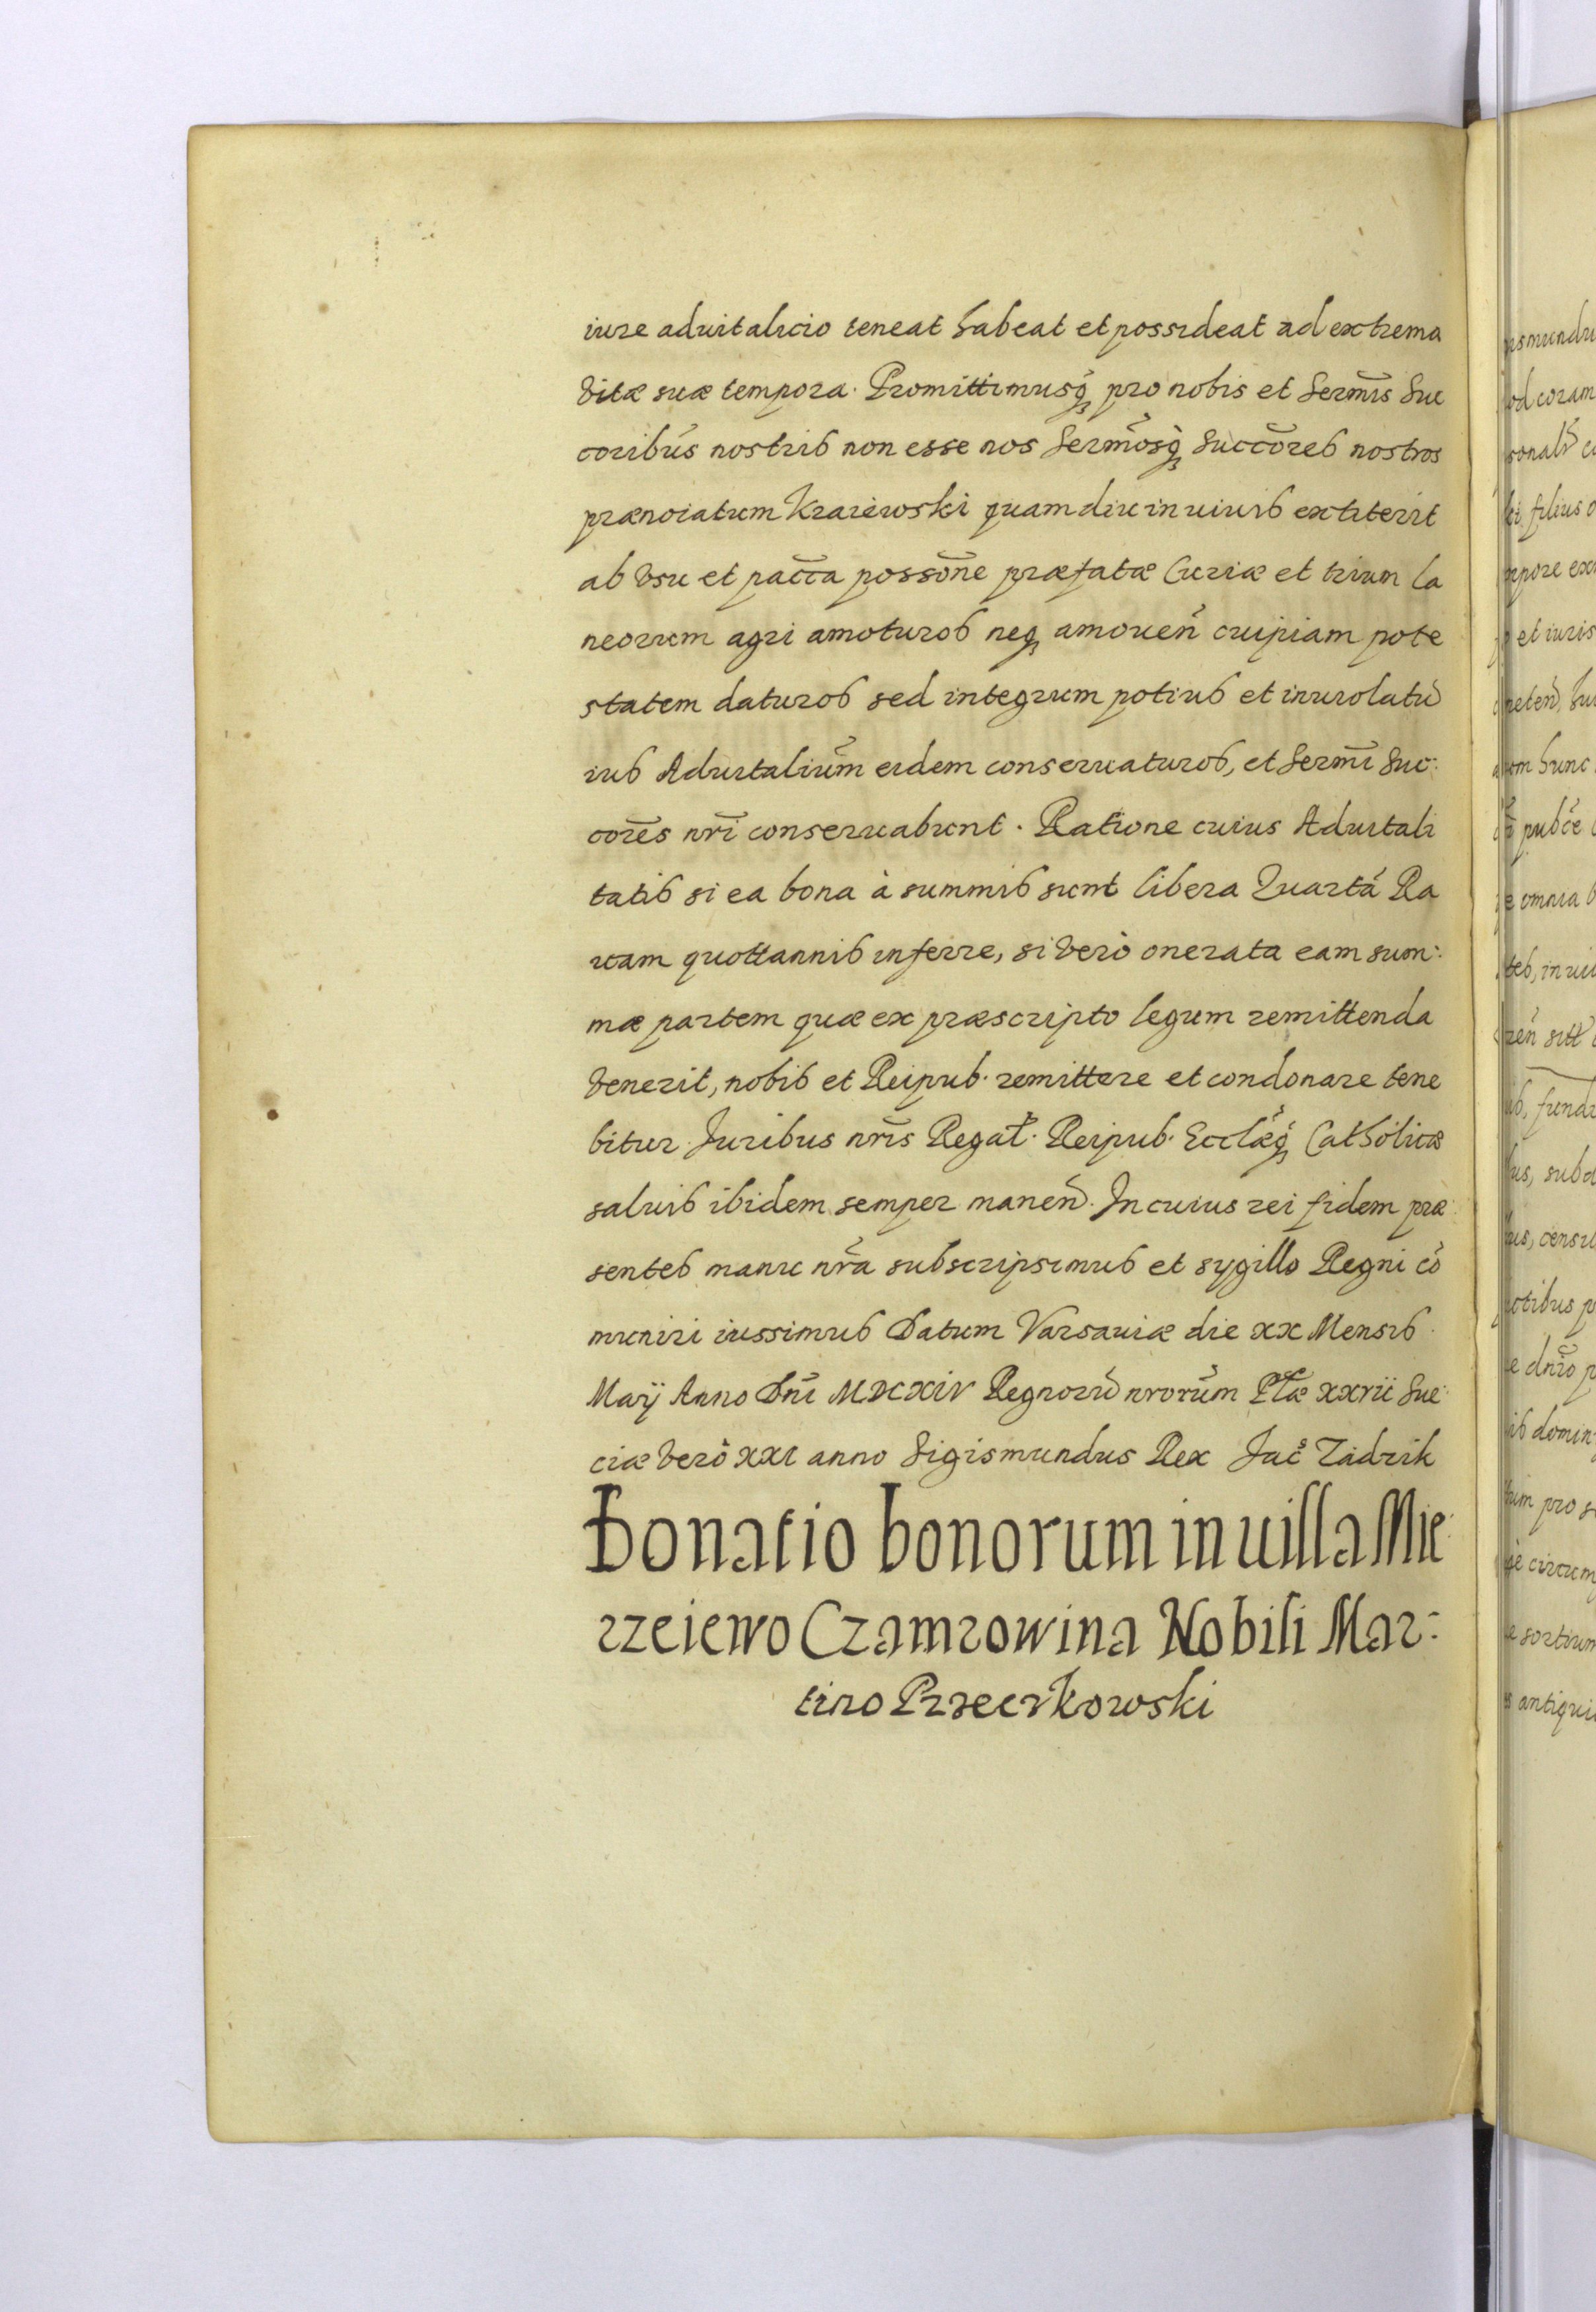 iure aduitalicio teneat habeat et possideat ad extrema
vitæ suæ tempora. Promittimusq́ꝫ pro nobis et Serm̃is Suc
coribus̃ nostris non esse nos Serm̃osq́ꝫ Succõres nostros
prænoĩatum Kraiewski quamdiu in uiuis extiterit
ab vsu et pacc̃a possõne præfatæ Curiæ et trium la
neorum agri amoturos neqꝫ amouen̄ cuipiam pote
statem daturos sed integrum potius et inuiolatū
ius Aduitaliũm eidem conseruaturos, et Serm̃i Suc:
cores̃ nrĩ conseruabunt. Ratione cuius Aduitali
tatis si ea bona à summis sunt libera Quartá Ra
uam quottannis inferre, si verò onerata eam sum:
mæ partem quæ ex præscripto legum remittenda
venerit, nobis et Reipub. remittere et condonare tene
bitur. Juribus nrĩs Regal̃. Reipub. Ecclæq́ꝫ Catholicæ
saluis ibidem semper manen̄. In cuius rei fidem præ
sentes manu nrã subscripsimus et sygillo Regni cõ
muniri iussimus Datum Varsauiæ die xx Mensis
Maÿ Anno Dnĩ MDCXIV Regnorū nrorũm Pl̃æ xxvii Sue:
ciæ verò XXI anno Sigismundus Rex Jac̃ Zadzik
Donatio bonorum in uilla Mie
rzeiewo Czamzowina Nobili Mar:
tino Przeczkowski